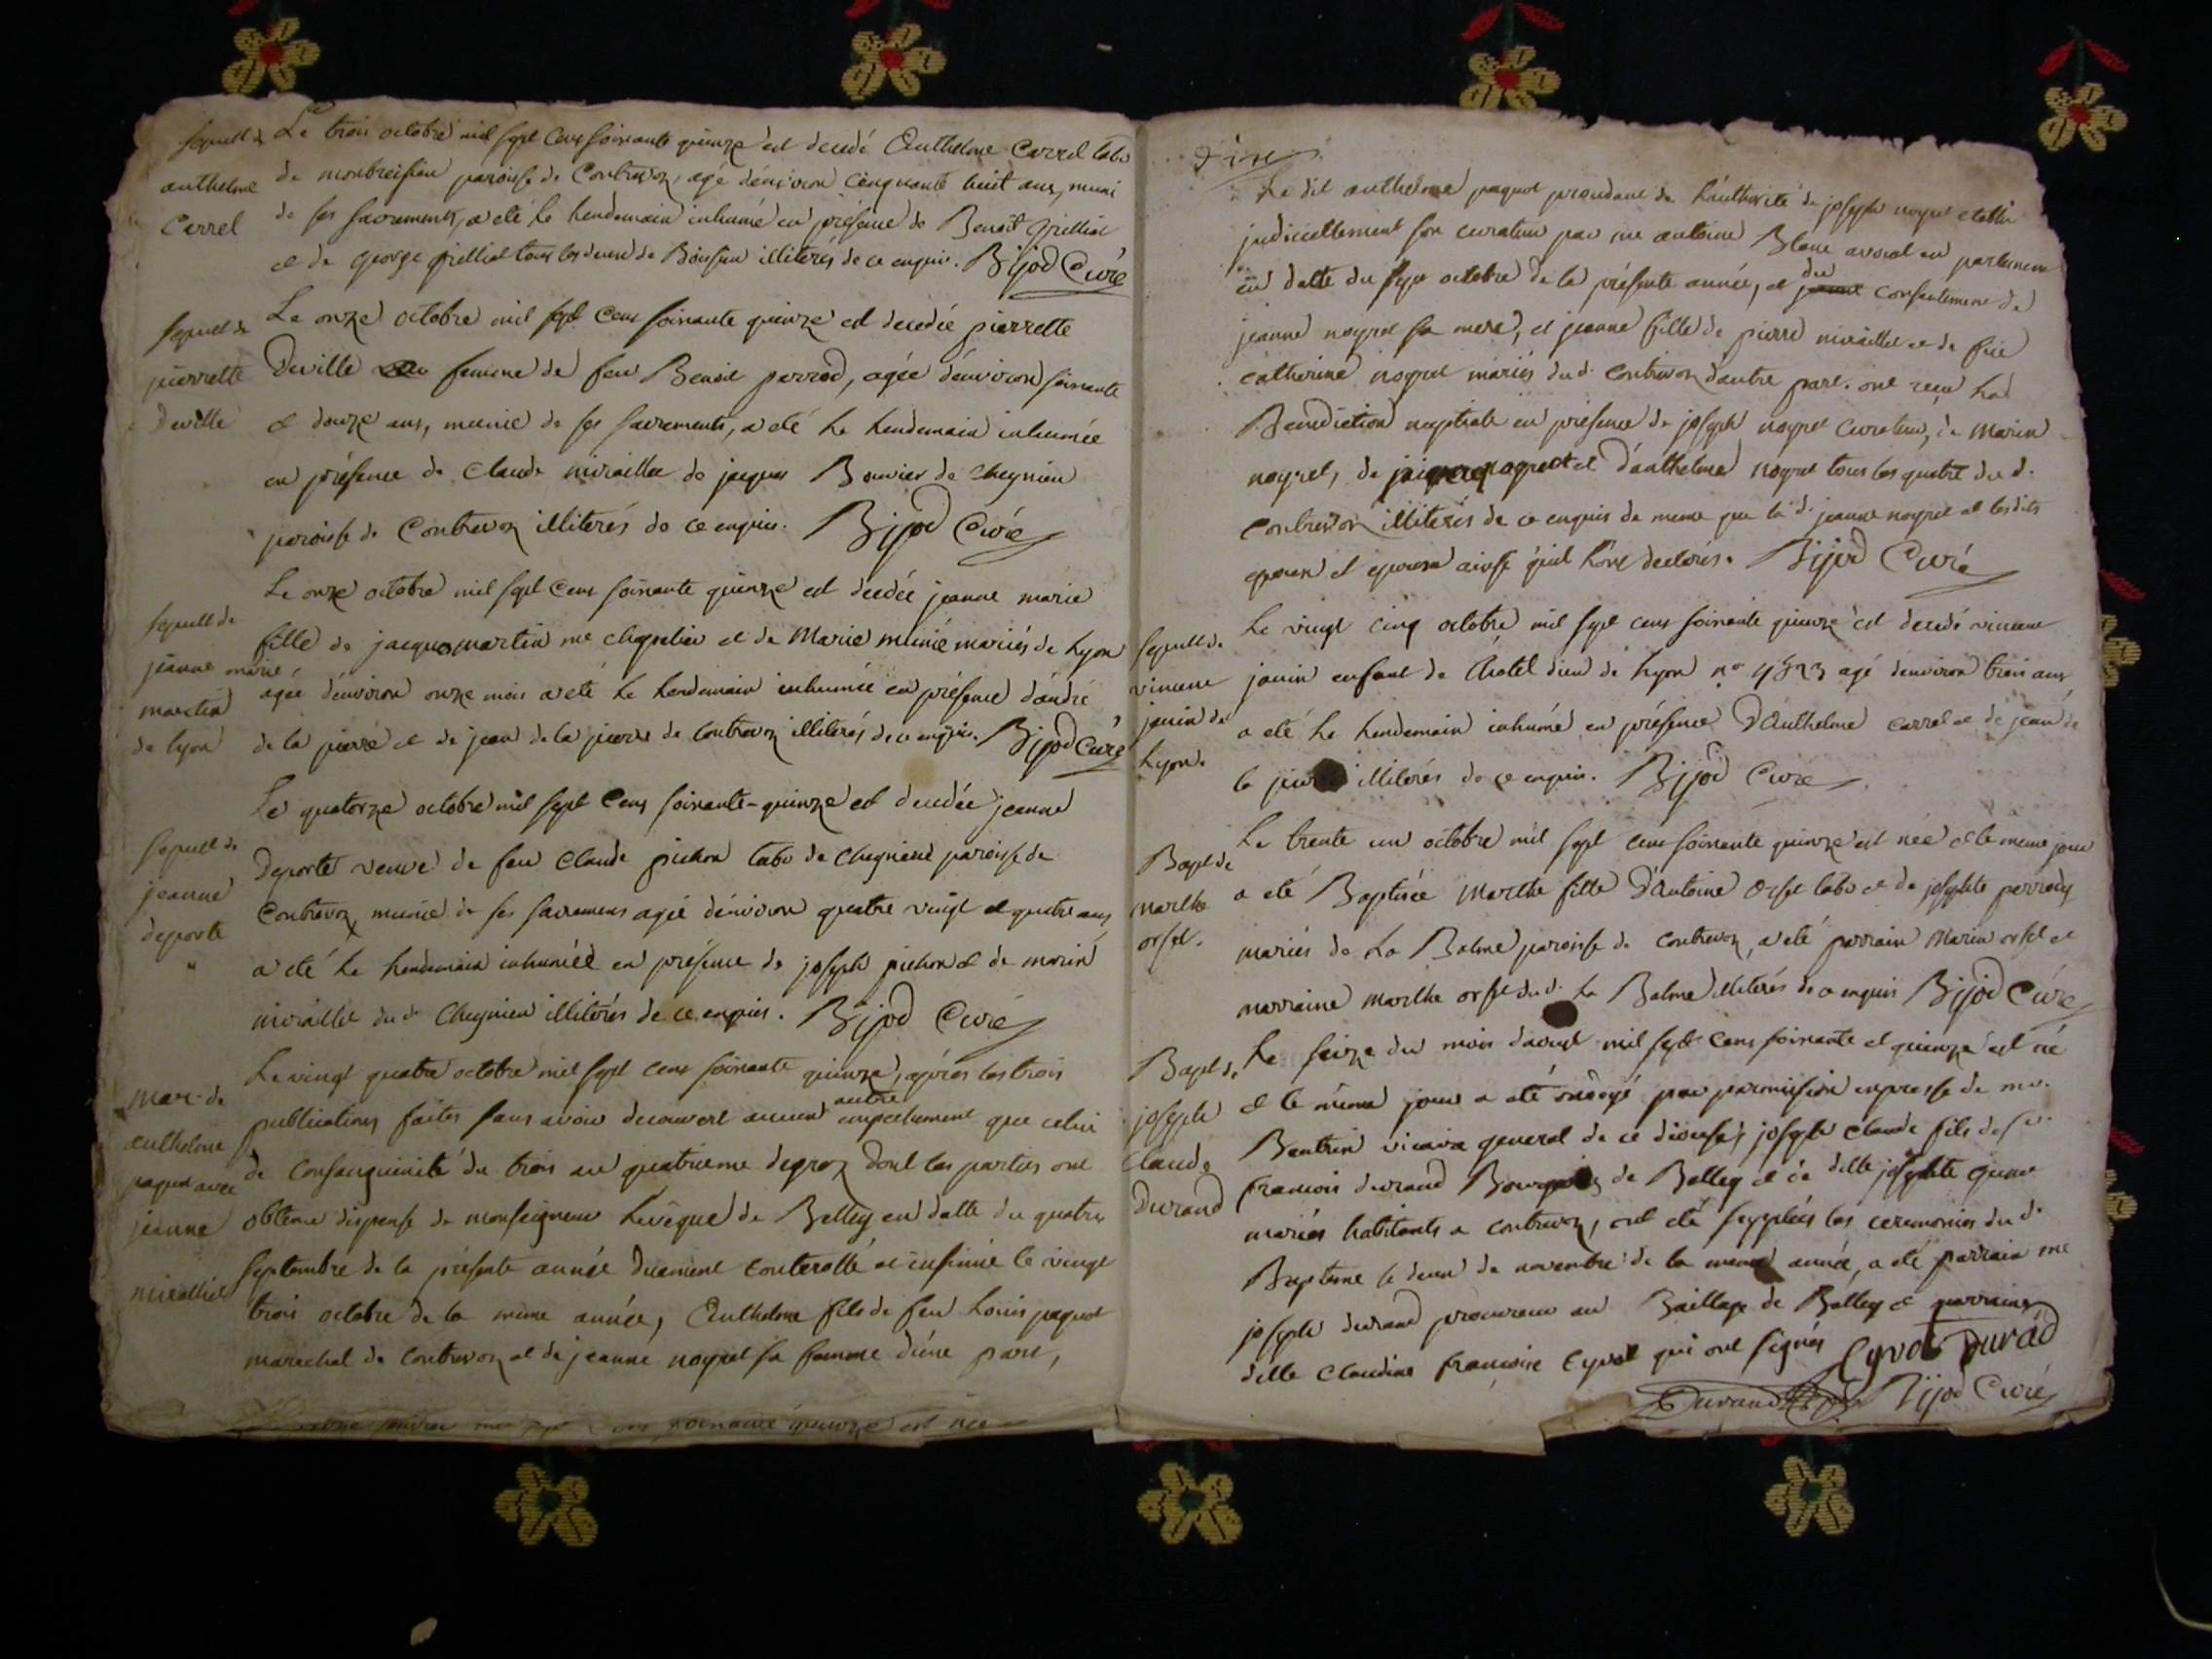 Sepult de
anthelme
Carrel
Le trois octobre mil sept cens soixante quinze est decedé Anthelme Carrel labr
de montbreisieu paroisse de Contrevoz, agé d'environ cinquante huit ans, muni
de ses sacrements, a eté le lendemain inhumé en présence de Benoît grilliet
et de george grilliet tous les deux de Boissieu illiterés de ce enquis. Bijod Curé
Sepult de
pierrette
Deville
Le onze octobre mil sept cens soixante quinze est decedée pierrette
Deville femme de feu Benoit perrod, agée d'environ soixante
et douze ans, munie de ses sacrements, a eté le lendemain inhumée
en présence de Claude miraillet de jacques Bouvier de Cheynieu
paroisse de Contrevoz illiterés de ce enquis. Bijod Curé
Sepult de
jeanne marie
martin
de lyon
Le onze octobre mil sept cens soixante quinze est decedée jeanne marie
fille de jacques martin me chapelier et de Marie munié mariés de Lyon
agée d'environ onze mois a eté le lendemain inhumée en présence d'andré
de la pierre et de jean de la pierre de Contrevoz illiterés de ce enquis. Bijod Curé
Sepult de
jeanne
deporte
Le quatorze octobre mil sept cens soixante-quinze est decedée jeanne
Deporte veuve de feu Claude pichon labr de Cheynieu paroisse de
Contrevoz munie de ses sacremens agée d'environ quatre vingt et quatre ans
a eté le lendemain inhumée en présence de joseph pichon et de marin
miraillet dud. Cheynieu illiterés de ce enquis. Bijod Curé
Mar. de
anthelme
paquet avec
jeanne
miraillet
Le vingt quatre octobre mil sept cens soixante quinze, après les trois
publications faites sans avoir decouvert aucun autre empechement que celui
de Consanguinité du trois au quatrieme degrez dont les parties ont
obtenu dispense de monseigneur L'evêque de Belley en datte du quatre
septembre de la présente année duement Controllé et insinué le vingt
trois octobre de la même année, Anthelme fils de feu Louis paquet
marechal de Contrevoz et de jeanne noyret sa femme d'une part,
soixante quinze est née
Le dit anthelme paquet procedant de L'authorité de joseph noyret etabli
judiciellement son curateur par me antoine Blanc avocat en parlement
en datte du sept octobre de la présente année, et du consentement de
jeanne noyret sa mere, et jeanne fille de pierre miraillet et de feüe
catherine noyret mariés dud. Contrevoz d'autre part. ont reçu La
Benediction nuptiale en présence de joseph noyret curateur, de Marin
noyret, de et d'anthelme noyret tous les quatre dud.
Contrevoz illiterés de ce enquis de meme que la d. jeanne noyret et lesdits
epoux et epouse ainsi qu'il l'ont declarés. Bijod Curé
Sepult de
vincent
janin de
Lyon.
Le vingt cinq octobre mil sept cens soixante quinze est decedé vincent
janin enfant de l'hotel dieu de Lyon no agé d'environ trois ans
a eté le lendemain inhumé en présence D'Anthelme carrel et de jean de
la pierre illiterés de ce enquis. Bijod Curé
Bapt de
Marthe
orset.
Le trente un octobre mil sept cens soixante quinze est née et le meme jour
a eté Baptisée Marthe fille D'Antoine Orset labr et de josephte perrod
mariés de La Balme paroisse de Contrevoz, a eté parrain Marin orset et
marraine Marthe orset dud. La Balme illiterés de ce enquis Bijod Curé
Bapt de
joseph
Claude
Durand
Le seize du mois d'aoust mil sept cens soixante et quinze est né
et le même jour a eté ondoyé par permission expresse de mr.
Bautrin vicaire general de ce diocese, joseph Claude fils de sr.
francois durand Bourgeois de Belley et de delle josephte
mariés habitants a Contrevoz, ont eté suppleés les ceremonies dud.
Baptême le deux de novembre de la meme année, a eté parrain me
joseph durand procureur au Baillage de Belley et marraine
delle Claudine francoise Eyvot qui ont signés Eyvot Durad
Durand Bijod Curé